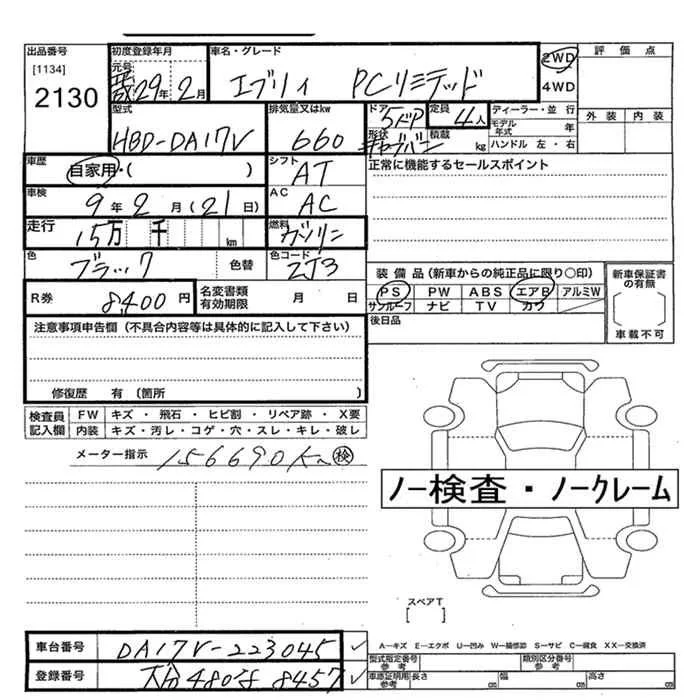 出品番号
[1134]
2130
初度登録年月
元号
平成29年2月
車名・グレード
エブリィ PCリミテッド
2WD
4WD
評価点
外装 内装
型式
HBD-DA17V
排気量又はkw
660
ドア
5ドア
形状
定員
4人
積載
kg
ディーラー・並行
モデル年式 年
ハンドル 左・右
車歴
自家用・( )
シフト
AT
正常に機能するセールスポイント
車検
9年2月(21日)
AC
AC
走行
15万 千 km
燃料
ガソリン
色
ブラック
色替
色コード
ZJ3
R券
8,400円
名変書類有効期限 月 日
装備品(新車からの純正品に限り○印)
PS PW ABS エアB アルミW
サンルーフ ナビ TV カワ
新車保証書の有無
車載不可
後日品
注意事項申告欄(不具合内容等は具体的に記入して下さい)
修復歴 有(箇所 )
検査員記入欄
FW キズ・飛石・ヒビ割・リペア跡・X要
内装 キズ・汚レ・コゲ・穴・スレ・キレ・破レ
メーター指示 156690km 検
ノー検査・ノークレーム
スペアT
車台番号 DA17V-223045
登録番号 大分480な8457
A-キズ E-エクボ U-凹み W-補修跡 S-サビ C-腐食 XX-交換済
型式指定番号 参考
類別区分番号 参考
車庫証明用 参考
長さ cm 幅 cm 高さ cm